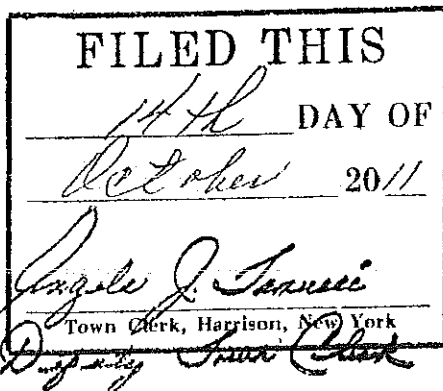 FILED THIS
14th DAY OF
October 2011
Angelo J.
Town Clerk, Harrison, New York
Deputy Town Clerk